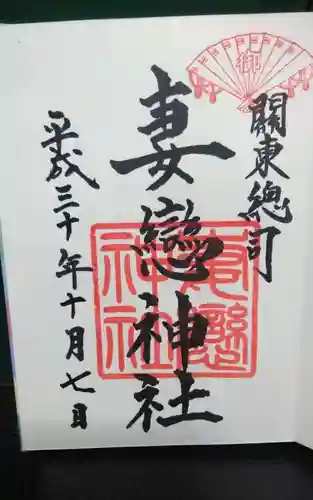 關東總司
妻戀神社
平成三十年十月七日
御
妻戀
神社